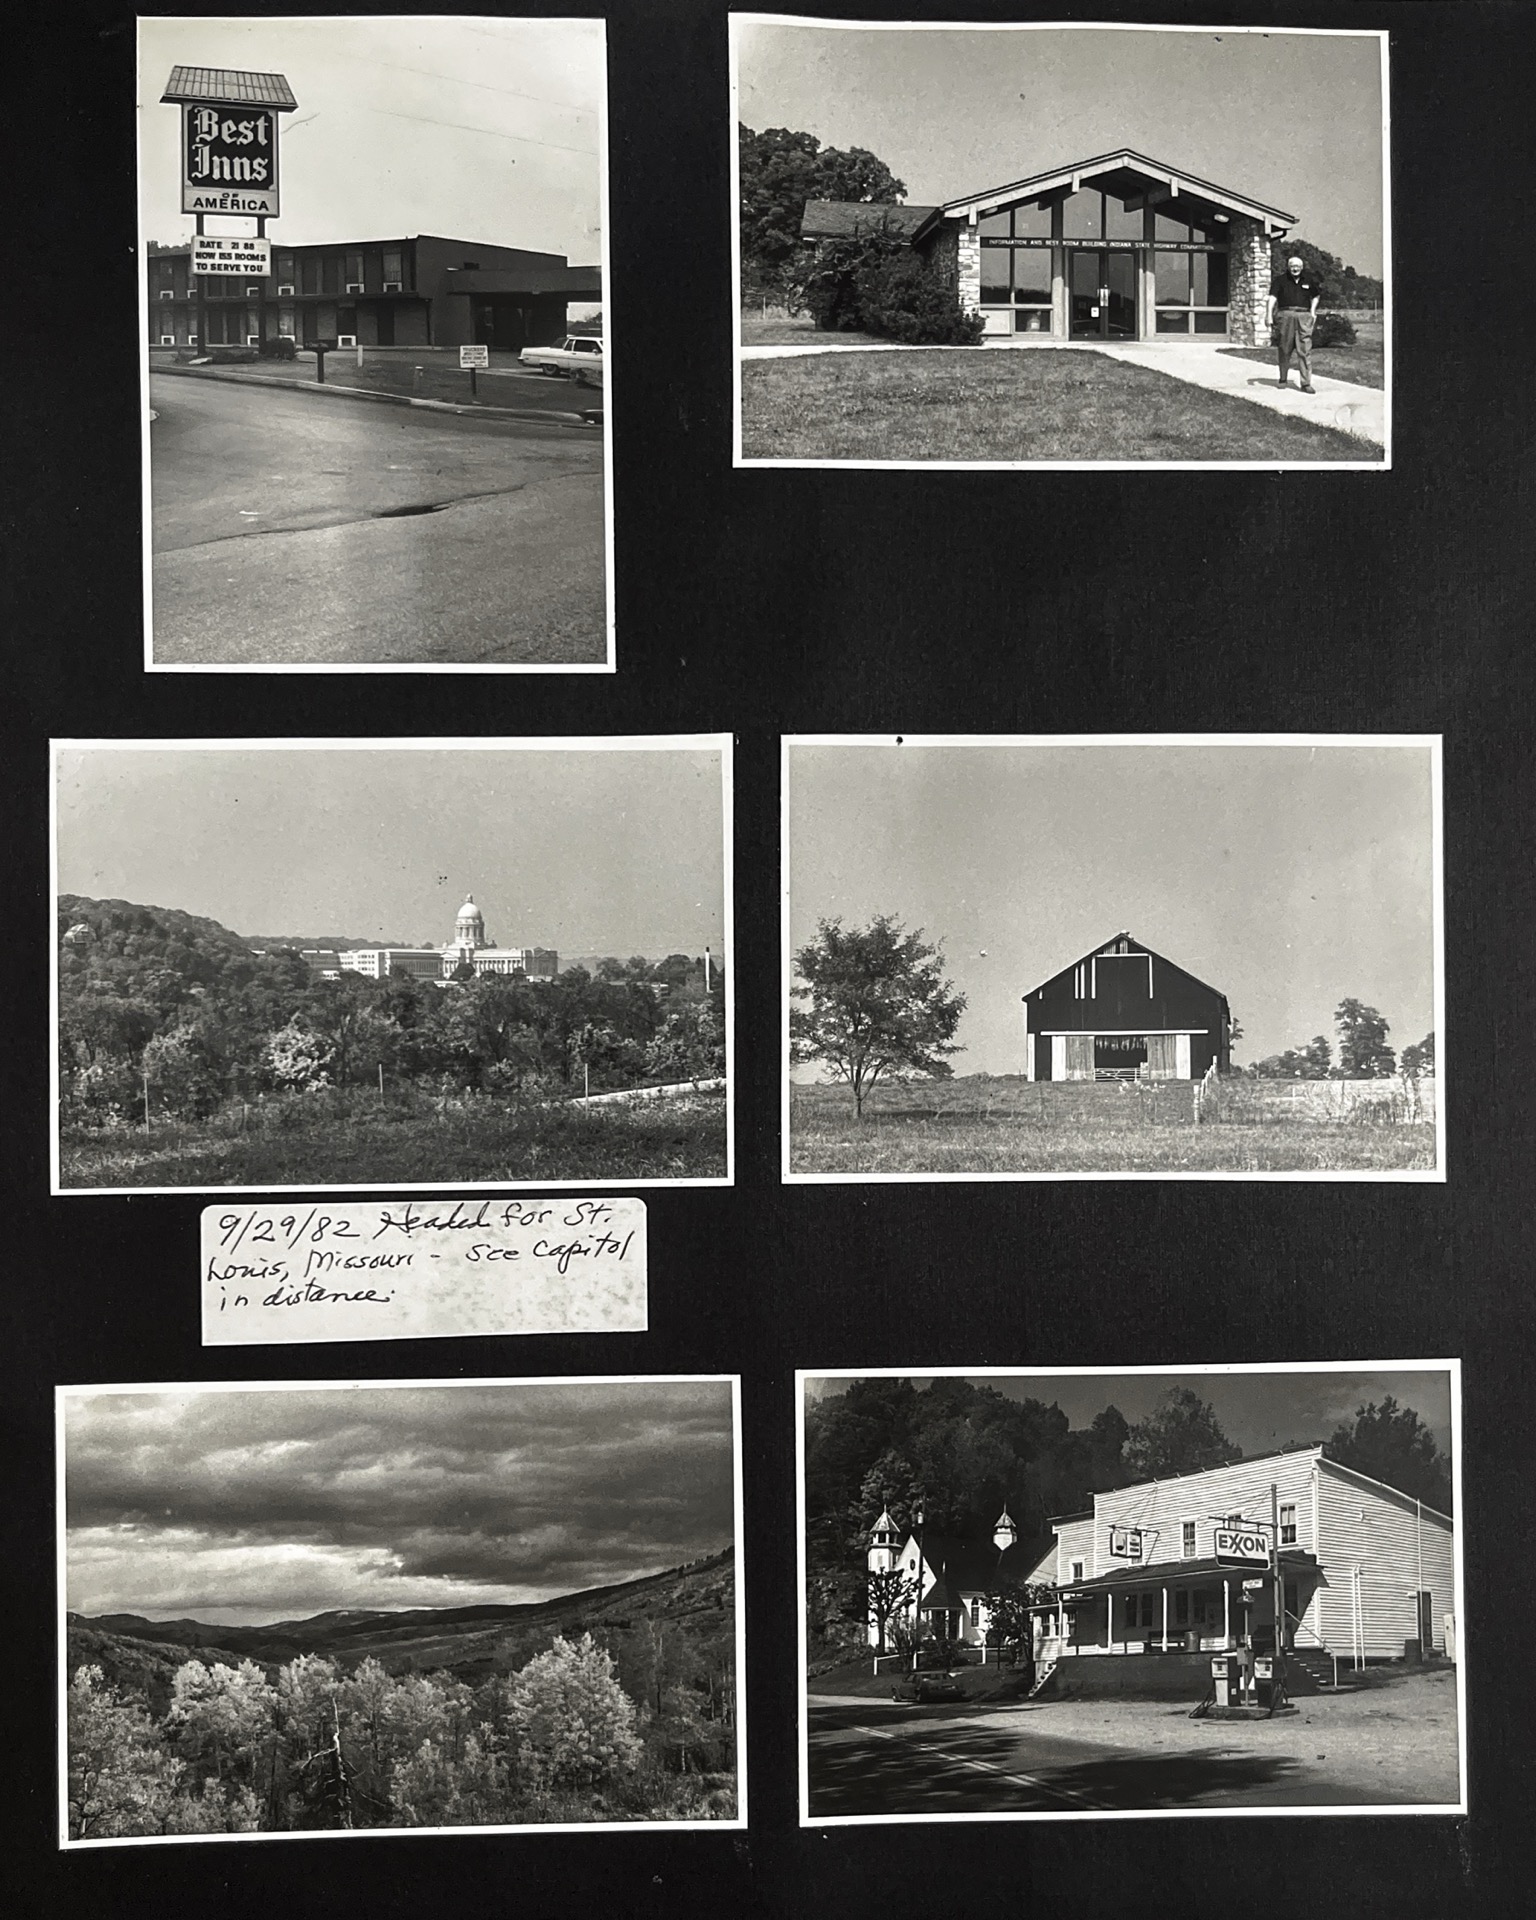 Best
Inns
OF
AMERICA
RATE 21 88
NOW 155 ROOMS
TO SERVE YOU
INFORMATION AND REST ROOM BUILDING INDIANA STATE HIGHWAY COMMISSION
9/29/82 Headed for St.
Louis, Missouri - see Capitol
in distance.
EXXON